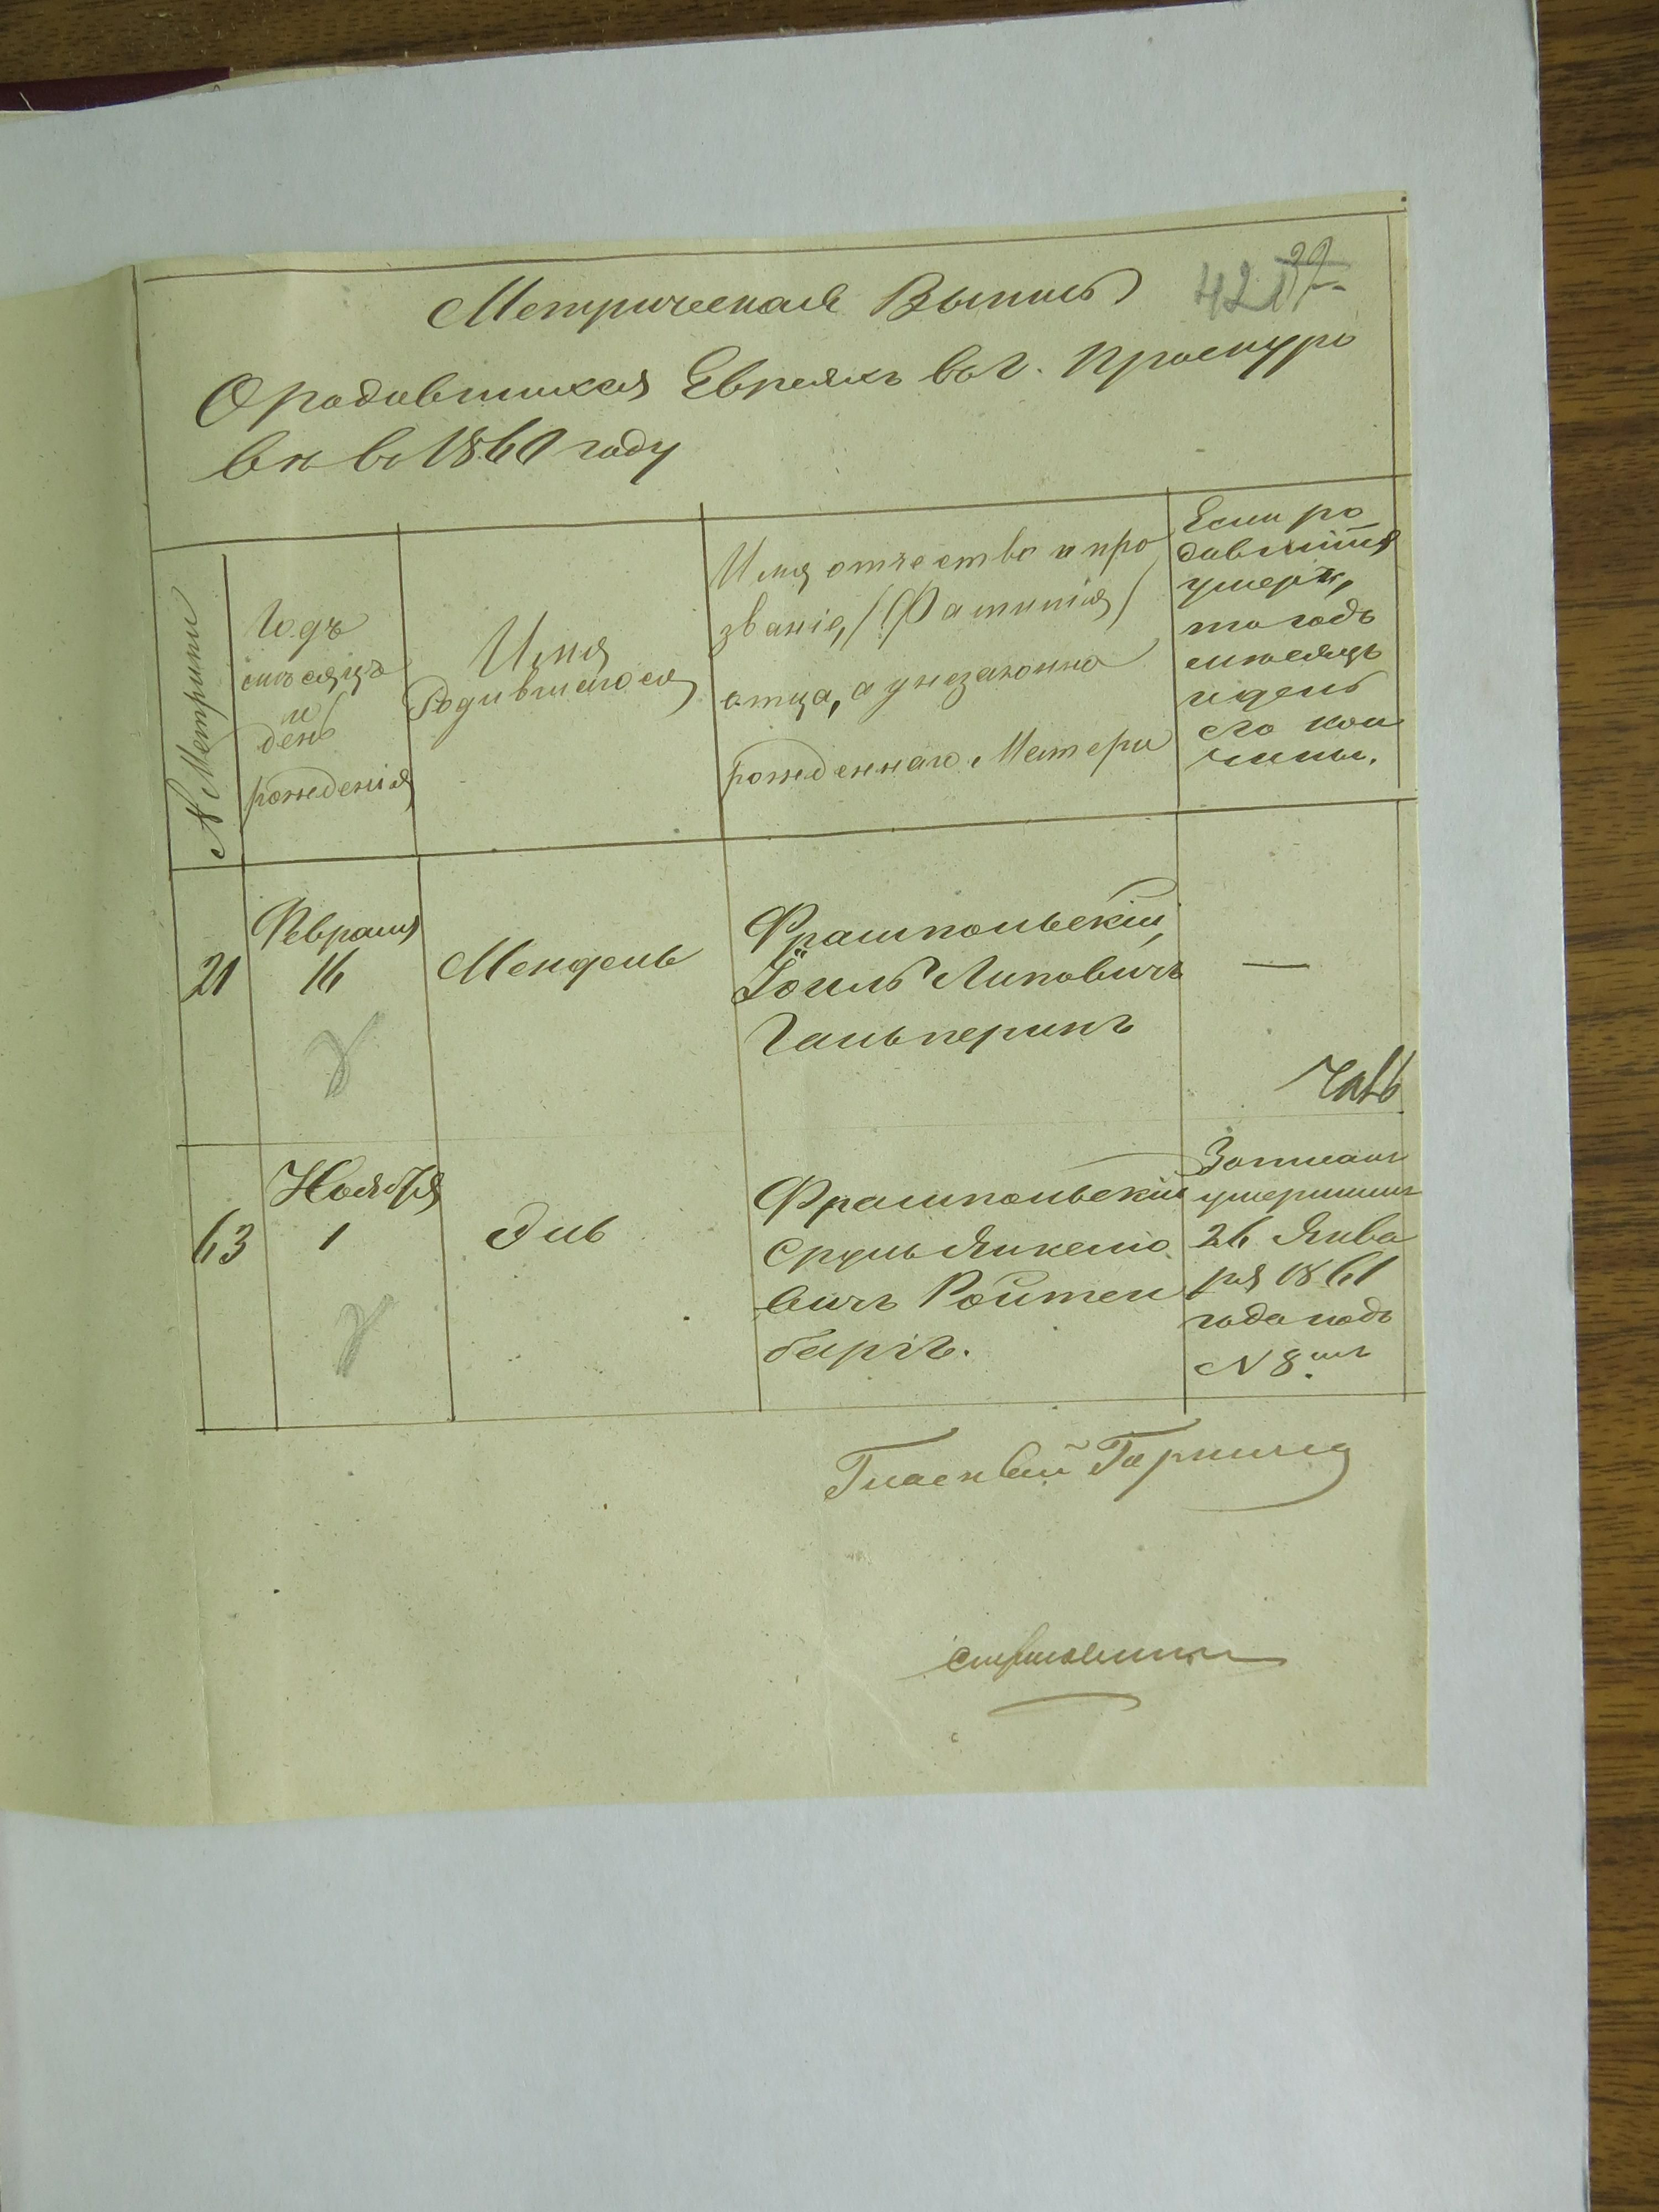 Метрическая Выпись
О родившихся Евреяхъ въ г. Проскуро
вѣ въ 1860 году
№ Метрики
Годъ
мѣсяцъ
и
день
рожденія
Имя
Родившагося
Имя отчество и про
званіе, /Фамилія/
отца, а у незаконно
рожденнаго Матери
Если ро
дившійся
умеръ,
то годъ
мѣсяцъ
и день
его кон
чины.
21
Февраля
16
Мендель
Фрампольскій,
Іойль Липовичъ
Гальперинъ
—
63
Ноября
1
Эль
Фрампольскій
Сруль Янкелю
вичъ Ройтен
баргъ.
Записанъ
умершимъ
26 Янва
ря 1861
года подъ
N 8.мъ
Гласный